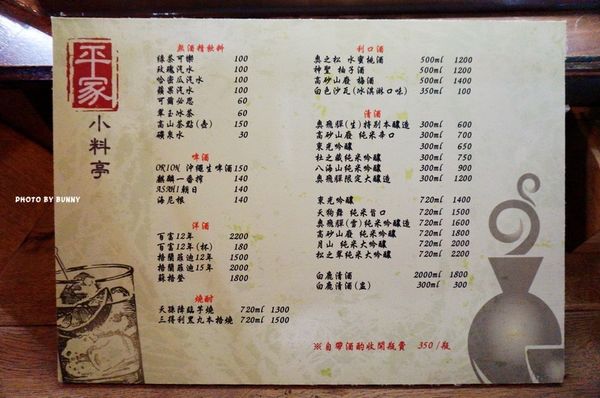 平家
小料亭
無酒精飲料
綠茶可樂 100
玫瑰汽水 100
哈密瓜汽水 100
蘋果汽水 100
可爾必思 60
翠玉冰茶 60
高山茶點(壺) 150
礦泉水 30
啤酒
ORION 沖繩生啤酒 150
麒麟一番搾 140
ASAHI朝日 140
海尼根 140
洋酒
百富12年 2200
百富12年(杯) 180
格蘭菲迪12年 1500
格蘭菲迪15年 2000
蘇格登 1800
燒酎
天孫降臨芋燒 720ml 1300
三得利黑丸本格燒 720ml 1500
利口酒
奧之松 水蜜桃酒 500ml 1200
神聖 柚子酒 500ml 1200
高砂山廢 梅酒 500ml 1400
白色沙瓦(冰淇淋口味) 350ml 100
清酒
奧飛驒(生)特別本釀造 300ml 600
高砂山廢 純米辛口 300ml 700
東光吟釀 300ml 650
杜之藏純米吟釀 300ml 750
八海山純米吟釀 300ml 900
奧飛驒限定大釀造 300ml 1200
東光吟釀 720ml 1400
天狗舞 純米旨口 720ml 1500
奧飛驒(雪)純米吟釀造 720ml 1600
高砂山廢 純米吟釀 720ml 2000
月山 純米大吟釀 720ml 2000
松之庭 純米大吟釀 720ml 2200
白鹿清酒 2000ml 1800
白鹿清酒(盅) 300ml 300
※自帶酒酌收開瓶費 350/瓶
PHOTO BY BUNNY